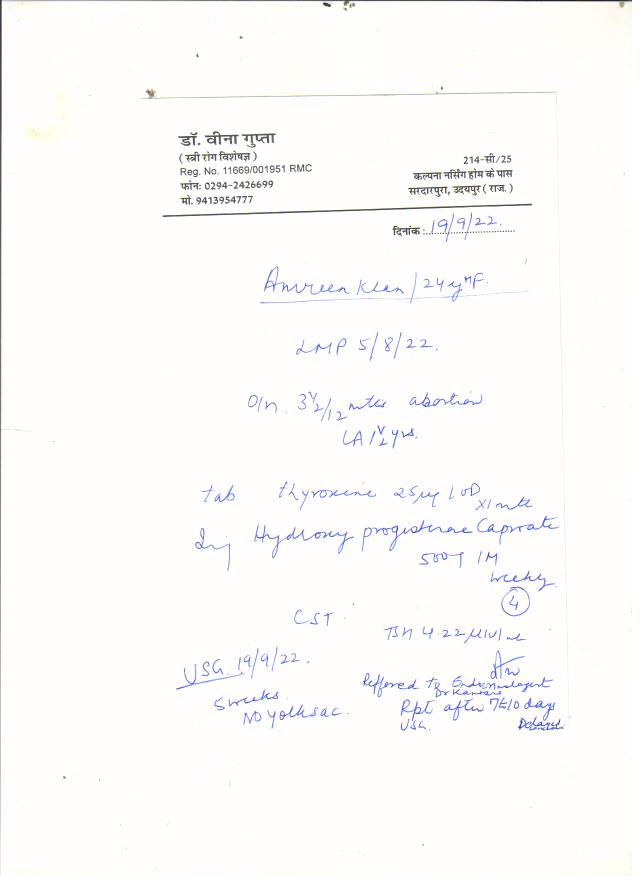 डॉ. वीना गुप्ता
( स्त्री रोग विशेषज्ञ )
Reg. No. 11669/001951 RMC
फोन: 0294-2426699
मो. 9413954777
214-सी/25
कल्पना नर्सिंग होम के पास
सरदारपुरा, उदयपुर ( राज. )
दिनांक : 19/9/22.
Amreen Khan / 24 yr F.
LMP 5/8/22.
O/h. 3½/12 mths abortion
LA 1½ yrs.
tab thyroxine 25µg 1 OD
x1 mth
Inj Hydroxy progesterone Caproate
500 IM
weekly
4
CST
TSH 4.22 µIU/ml
USG. 19/9/22.
5 weeks.
NO yolksac.
Reffered to
Rpt after 7-10 days
USG.